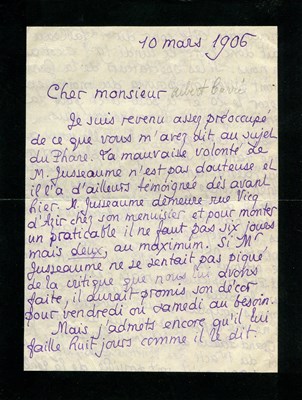 10 mars 1906
Cher monsieur
Je suis revenu assez préoccupé
de ce que vous m'avez dit au sujet
du Phare. La mauvaise volonté de
M. Jusseaume n'est pas douteuse et
il l'a d'ailleurs témoigné dès avant
hier. M. Jusseaume demeure rue Vicq
d'Azir chez son menuisier et pour monter
un praticable il ne faut pas six jours
mais deux, au maximum. Si Mr
Jusseaume ne se sentait pas piqué
de la critique que nous lui avons
faite, il aurait promis son décor
pour vendredi ou samedi au besoin.
Mais j'admets encore qu'il lui
faille huit jours comme il le dit.